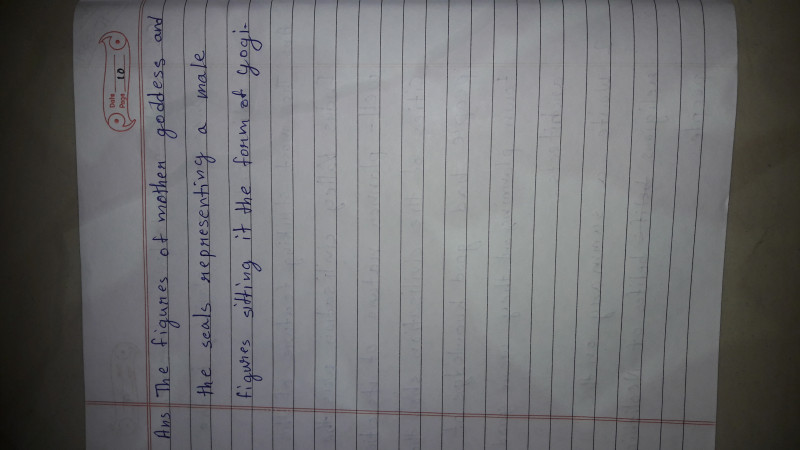 Date
Page 10
Ans The figures of mother goddess and
the seals representing a male
figures sitting it the form of yogi-